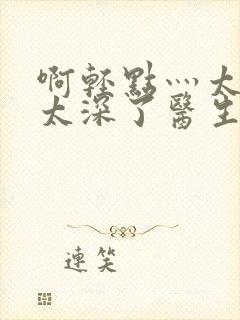 啊轻點灬太
太深了醫生
連笑